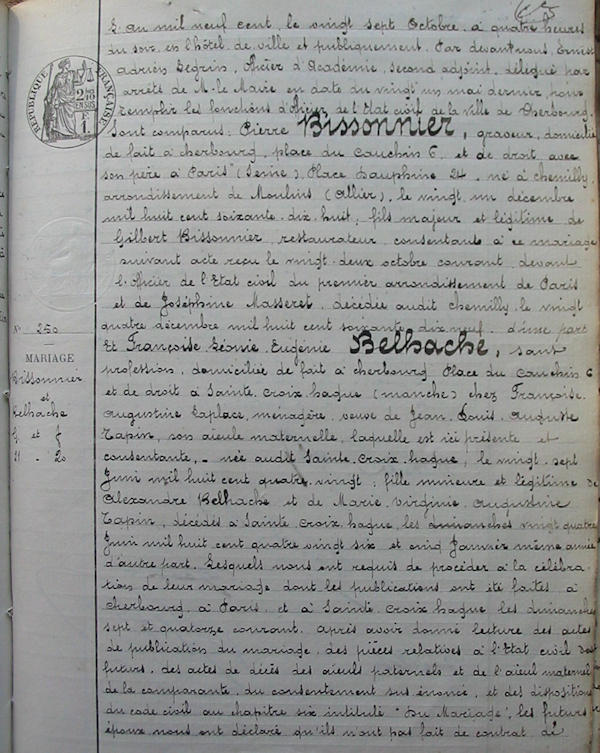 L'an mil neuf cent, le vingt sept Octobre, à quatre heures
du soir, en l'hôtel de ville et publiquement. Par devant nous, Ernest
Adrien Segrin, Officier d'Académie, second adjoint, délégué par
arrêté de M. le Maire en date du vingt un mai dernier, pour
remplir les fonctions d'officier de l'Etat civil de la ville de Cherbourg.
Sont comparus: Pierre Bissonnier, graveur, domicilié
de fait à Cherbourg, place du Cauchin 6, et de droit avec
son père à Paris (Seine), Place Dauphine 24, né à Chemilly,
arrondissement de Moulins (Allier), le vingt un décembre
mil huit cent soixante dix huit; fils majeur et légitime de
Gilbert Bissonnier, restaurateur, consentant à ce mariage
suivant acte reçu le vingt deux octobre courant devant
l'Officier de l'Etat civil du premier arrondissement de Paris
et de Joséphine Masseret, décédée audit Chemilly, le vingt
quatre décembre mil huit cent soixante dix neuf. d'une part
Et Françoise Léonie Eugénie Belhache, sans
profession, domiciliée de fait à Cherbourg Place du Cauchin 6
et de droit à Sainte Croix hague (Manche) chez Françoise
Augustine Laplace, ménagère, veuve de Jean Louis Auguste
Tapin, son aïeule maternelle, laquelle est ici présente et
consentante, née audit Sainte Croix hague, le vingt sept
Juin mil huit cent quatre vingt; fille mineure et légitime de
Alexandre Belhache et de Marie Virginie Augustine
Tapin, décédés à Sainte Croix hague, les dimanches vingt quatre
Juin mil huit cent quatre vingt six et cinq Janvier même année
d'autre part. Lesquels nous ont requis de procéder à la célébra-
tion de leur mariage dont les publications ont été faites à
Cherbourg, à Paris, et à Sainte Croix hague les dimanches
sept et quatorze courant. Après avoir donné lecture des actes
de publication du mariage, des pièces relatives à l'Etat civil des
futurs, des actes de décès des aïeuls paternels et de l'aïeul maternel
de la comparante, du consentement sus énoncé, et des dispositions
du code civil au chapitre six intitulé "Du Mariage", les futurs
époux nous ont déclaré qu'ils n'ont pas fait de contrat de
RÉPUBLIQUE FRANÇAISE
N° 250
MARIAGE
Bissonnier
et
Belhache
21 - 20